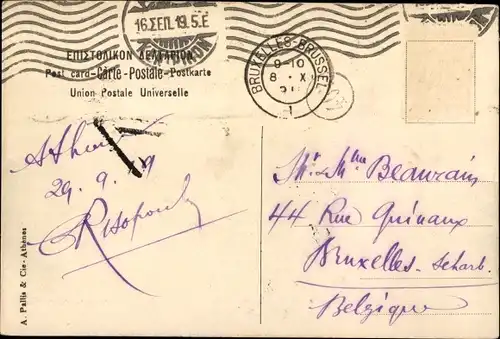 16 ΣΕΠ. 19. 5. Ε
BRUXELLES-BRUSSEL
9-10
8 · X
ΕΠΙΣΤΟΛΙΚΟΝ ΔΕΛΤΑΡΙΟΝ
Post card-Carte-Postale-Postkarte
Union Postale Universelle
29. 9.
Mr. Mme Beaurain
44 Rue Quinaux
Bruxelles-Schaerb.
Belgique
A. Pallis & Cie-Athènes